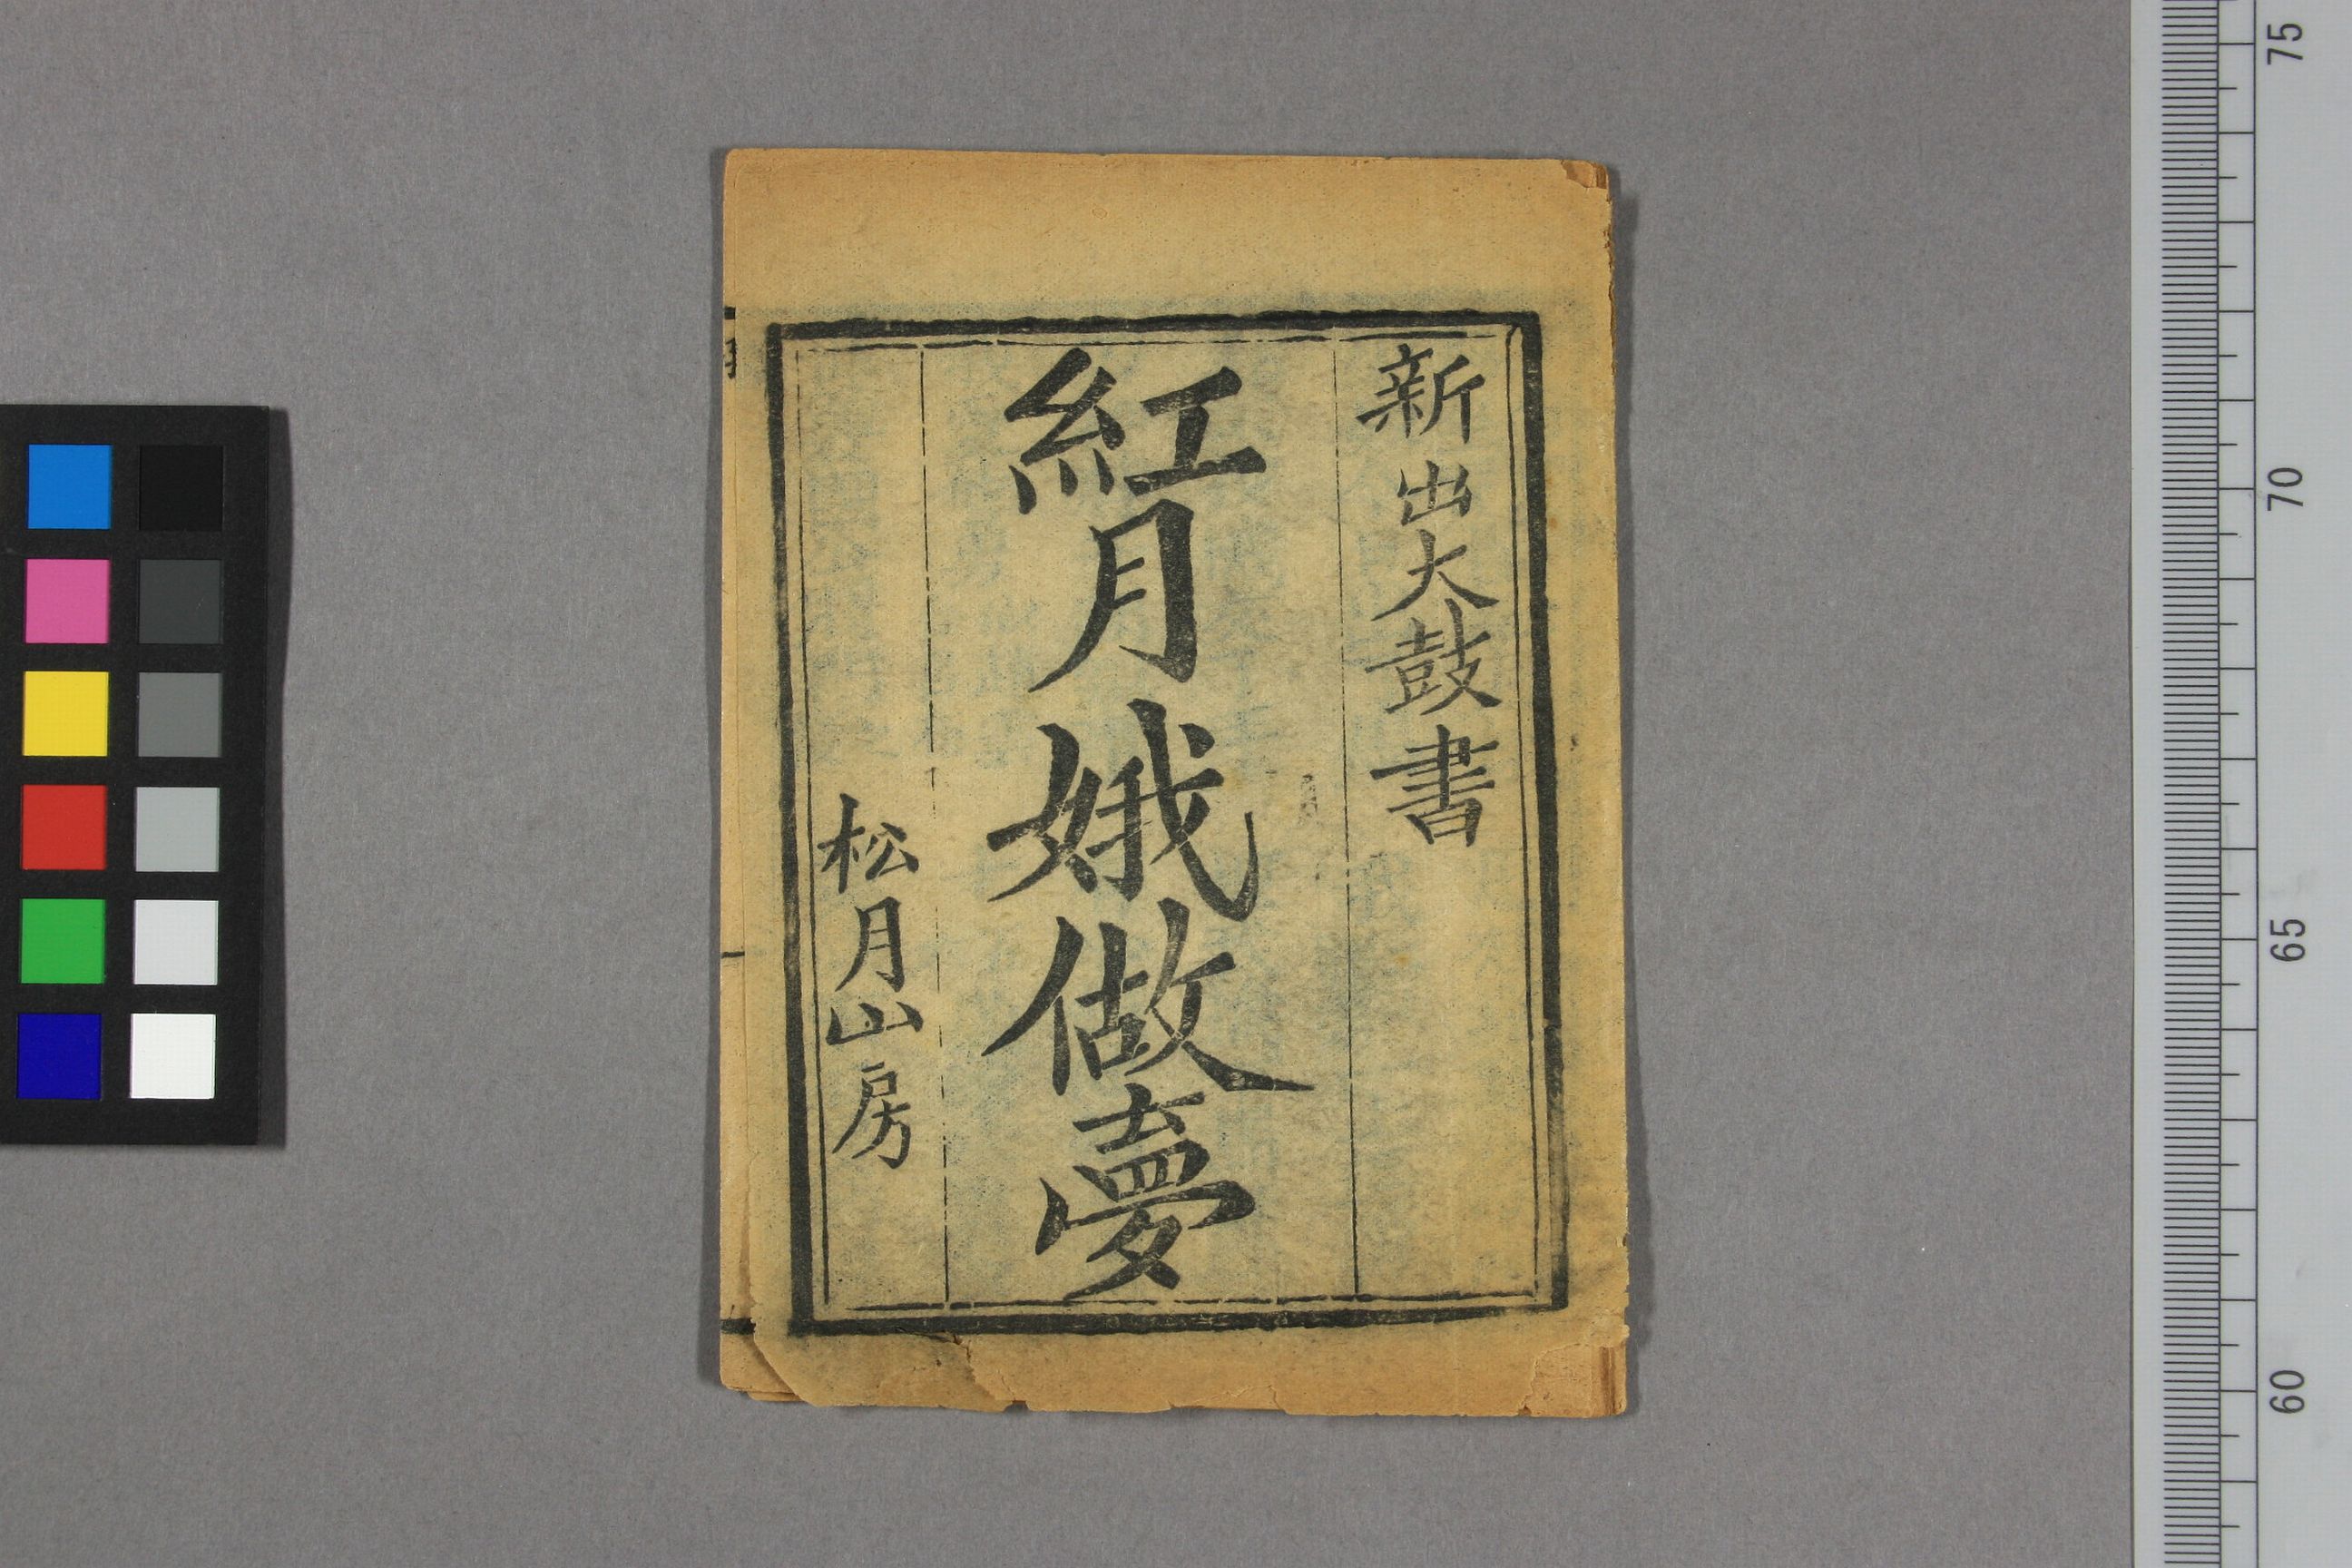 新出大鼓書
紅月娥做夢
松月山房
75
70
65
60